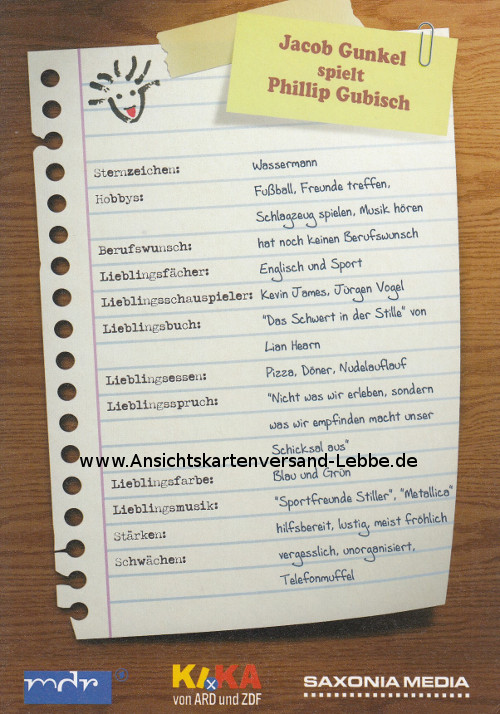 Jacob Gunkel
spielt
Phillip Gubisch
Sternzeichen: Wassermann
Hobbys: Fußball, Freunde treffen,
Schlagzeug spielen, Musik hören
Berufswunsch: hat noch keinen Berufswunsch
Lieblingsfächer: Englisch und Sport
Lieblingsschauspieler: Kevin James, Jürgen Vogel
Lieblingsbuch: "Das Schwert in der Stille" von
Lian Hearn
Lieblingsessen: Pizza, Döner, Nudelauflauf
Lieblingsspruch: "Nicht was wir erleben, sondern
was wir empfinden macht unser
Schicksal aus"
www.Ansichtskartenversand-Lebbe.de
Lieblingsfarbe: Blau und Grün
Lieblingsmusik: "Sportfreunde Stiller", "Metallica"
Stärken: hilfsbereit, lustig, meist fröhlich
Schwächen: vergesslich, unorganisiert,
Telefonmuffel
mdr KI.KA SAXONIA MEDIA
von ARD und ZDF